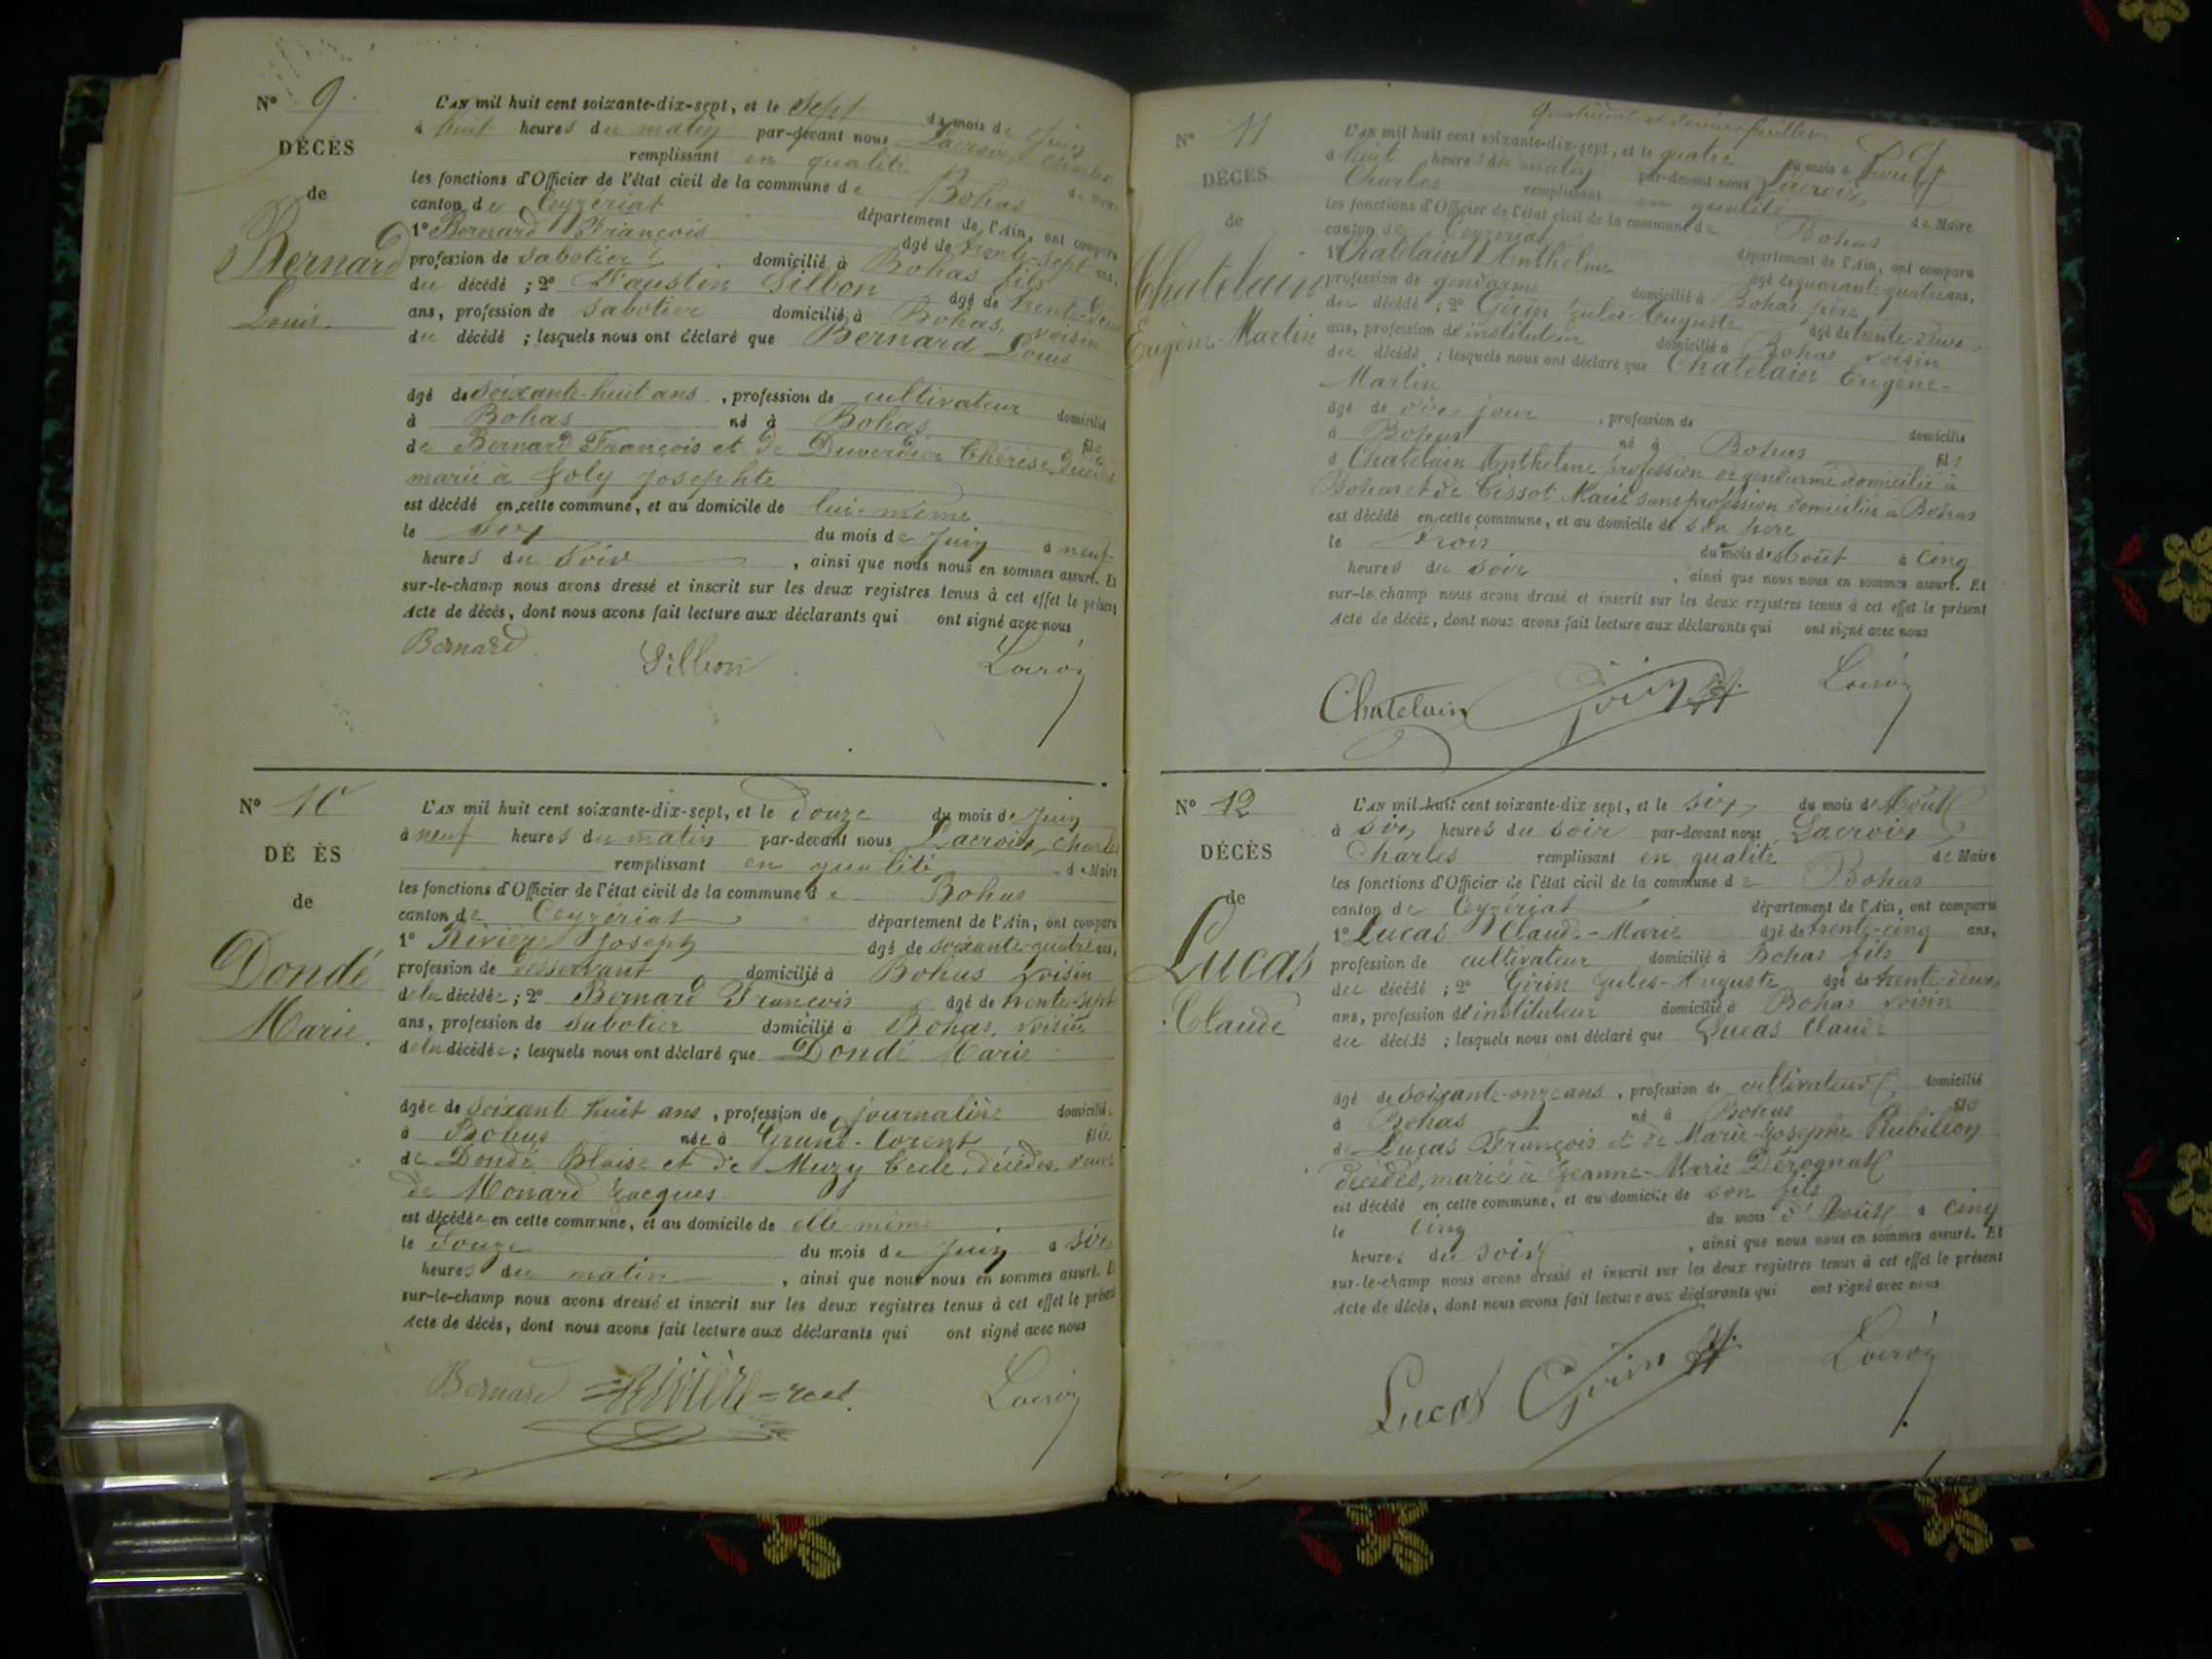 Nº 9
DÉCÈS
de
Bernard
Louis.
L'AN mil huit cent soixante-dix-sept, et le sept du mois de juin
à huit heures du matin par-devant nous Lacroix, Charles
remplissant en qualité de Maire
les fonctions d'Officier de l'état civil de la commune de Bohas
canton de Ceyzériat département de l'Ain, ont comparu
1º Bernard François âgé de trente-sept ans,
profession de sabotier domicilié à Bohas fils
du décédé ; 2º Faustin Silbon âgé de trente-deux
ans, profession de sabotier domicilié à Bohas, voisin
du décédé ; lesquels nous ont déclaré que Bernard Louis
âgé de soixante-huit ans, profession de cultivateur domicilié
à Bohas né à Bohas fils
de Bernard François et de Duverdier Thérèse, décédés
marié à Joly Josephte
est décédé en cette commune, et au domicile de lui-même
le six du mois de juin à neuf
heures du soir, ainsi que nous nous en sommes assuré. Et
sur-le-champ nous avons dressé et inscrit sur les deux registres tenus à cet effet le présent
Acte de décès, dont nous avons fait lecture aux déclarants qui ont signé avec nous
Bernard. Silbon Lacroix
Nº 10
DÉ ÈS
de
Dondé
Marie.
L'AN mil huit cent soixante-dix-sept, et le douze du mois de juin
à neuf heures du matin par-devant nous Lacroix, Charles
remplissant en qualité de Maire
les fonctions d'Officier de l'état civil de la commune de Bohas
canton de Ceyzériat département de l'Ain, ont comparu
1º Rivière Joseph âgé de soixante-quatre ans,
profession de desservant domicilié à Bohas voisin
de la décédée ; 2º Bernard François âgé de trente-sept
ans, profession de sabotier domicilié à Bohas, voisin
de la décédée ; lesquels nous ont déclaré que Dondé Marie
âgée de soixante huit ans, profession de journalière domiciliée
à Bohas née à Grand-Corent fille
de Dondé Blaise et de Muzy Cecile, décédés, veuve
de Monard Jacques
est décédée en cette commune, et au domicile de elle-même
le douze du mois de juin à six
heures du matin, ainsi que nous nous en sommes assuré. Et
sur-le-champ nous avons dressé et inscrit sur les deux registres tenus à cet effet le présent
Acte de décès, dont nous avons fait lecture aux déclarants qui ont signé avec nous
Bernard =Rivière= Lacroix
Quatrième et dernier feuillet
Nº 11
DÉCÈS
de
Chatelain
Eugène-Martin
L'AN mil huit cent soixante-dix-sept, et le quatre du mois d'Août
à huit heures du matin par-devant nous Lacroix,
Charles remplissant en qualité de Maire
les fonctions d'Officier de l'état civil de la commune de Bohas
canton de Ceyzériat département de l'Ain, ont comparu
1º Chatelain Anthelme âgé de quarante-quatre ans,
profession de gendarme domicilié à Bohas père
du décédé ; 2º Goin Jules-Auguste âgé de trente-deux
ans, profession d'instituteur domicilié à Bohas voisin
du décédé ; lesquels nous ont déclaré que Chatelain Eugène-
Martin
âgé de jour, profession de domicilié
à Bohas né à Bohas fils
d Chatelain Anthelme profession de gendarme domicilié à
Bohas et de Tissot Marie sans profession domiciliée à Bohas
est décédé en cette commune, et au domicile de son père
le trois du mois d'Août à cinq
heures du soir, ainsi que nous nous en sommes assuré. Et
sur-le-champ nous avons dressé et inscrit sur les deux registres tenus à cet effet le présent
Acte de décès, dont nous avons fait lecture aux déclarants qui ont signé avec nous
Chatelain Goin Lacroix
Nº 12
DÉCÈS
de
Lucas
Claude
L'AN mil huit cent soixante-dix sept, et le six du mois d'Août
à six heures du soir par-devant nous Lacroix
Charles remplissant en qualité de Maire
les fonctions d'Officier de l'état civil de la commune de Bohas
canton de Ceyzériat département de l'Ain, ont comparu
1º Lucas Claude-Marie âgé de trente-cinq ans,
profession de cultivateur domicilié à Bohas fils
du décédé ; 2º Goin Jules-Auguste âgé de trente-deux
ans, profession d'instituteur domicilié à Bohas voisin
du décédé ; lesquels nous ont déclaré que Lucas Claude
âgé de soixante-onze ans, profession de cultivateur domicilié
à Bohas né à Bohas fils
de Lucas François et de Marie-Josephe Rubillon
décédés, marié à Jeanne-Marie Dérognat
est décédé en cette commune, et au domicile de son fils
le cinq du mois d'Août à cinq
heures du soir, ainsi que nous nous en sommes assuré. Et
sur-le-champ nous avons dressé et inscrit sur les deux registres tenus à cet effet le présent
Acte de décès, dont nous avons fait lecture aux déclarants qui ont signé avec nous
Lucas Goin Lacroix